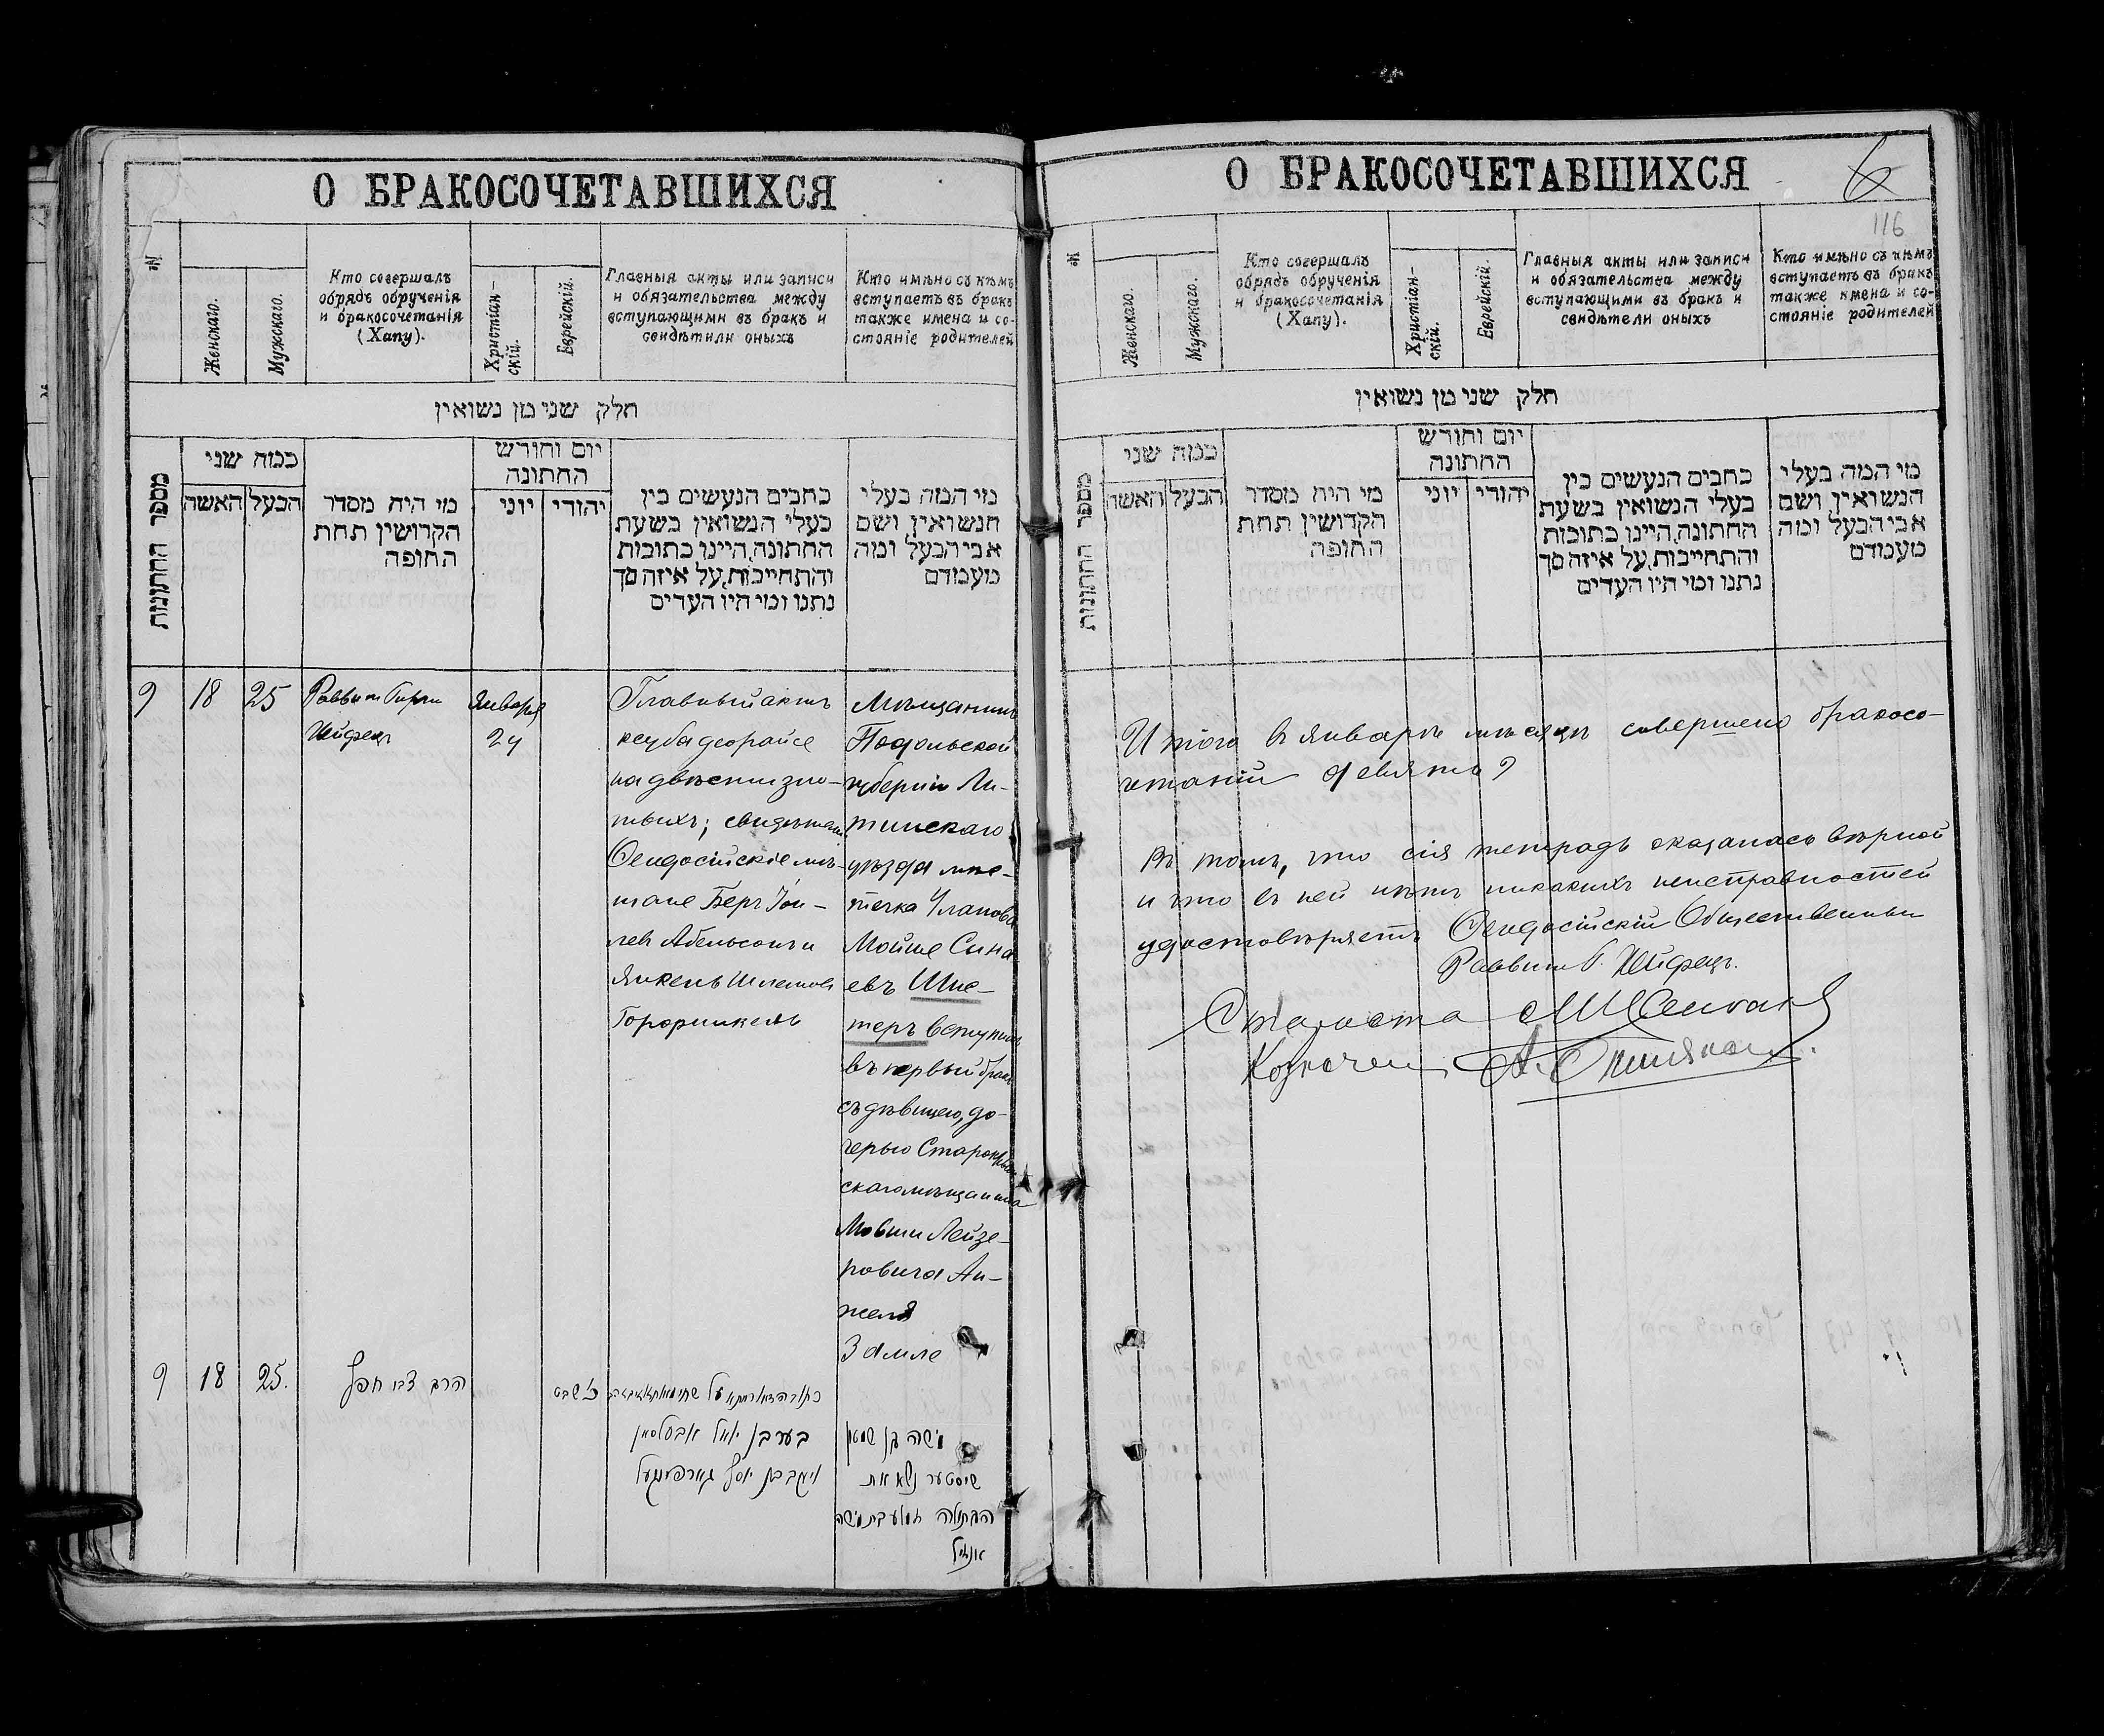 О БРАКОСОЧЕТАВШИХСЯ
№
Женскаго.
Мужскаго.
Кто совершалъ
обрядъ обрученія
и бракосочетанія
(Хапу).
Христіан-
скій.
Еврейскій.
Главныя акты или записи
и обязательства между
вступающими въ бракъ и
свидѣтили оныхъ
Кто имѣно съ кѣмъ
вступаетъ въ бракъ
также имена и со-
стояніе родителей
חלק שני מן נשואין
מספר החתונות
כמה שני
האשה
הבעל
מי היה מסדר
הקדושין תחת
החופה
יום וחורש
החתונה
יוני
יהודי
כתבים הנעשים בין
בעלי הנשואין בשעת
החתונה,היינו כתובות
והתחייבות,על איזה סך
נתנו ומי היו העדים
מי המה בעלי
הנשואין ושם
אבי הבעל ומה
מעמדם
9
18
25
Раввинъ Гирш
Хейфецъ
Января
24
Главный актъ
кесуба деорайсе
на двѣсти зло-
тыхъ; свидѣтели
Ѳеодосійскіе мѣ-
щане Беръ Іои-
левъ Абельсонъ и
Янкель Шлемовъ
Мѣщанинъ
Подольской
губерніи Ли-
тинскаго
уѣзда мѣс-
течка Уланова
Мойше Сина-
евъ Шис-
теръ вступилъ
въ первый бракъ
съ дѣвицею, до-
черью Старокрым
скаго мѣщанина
Мовши Лейзе-
ровича Ан-
желя
Замле
9
18
25.
הרב צבי חפץ
כ׳ שבט
בער בן יואל אבעלסאן
משה בן
שיסטער נשא את
הבתולה זאמלע בת משה
אנזיל
О БРАКОСОЧЕТАВШИХСЯ
6
116
№
Женскаго.
Мужскаго.
Кто совершалъ
обрядъ обрученія
и бракосочетанія
(Хапу).
Христіан-
скій.
Еврейскій.
Главныя акты или записи
и обязательства между
вступающими въ бракъ и
свидѣтели оныхъ
Кто имѣно съ кѣмъ
вступаетъ въ бракъ
также имена и со-
стояніе родителей
חלק שני מן נשואין
מספר החתונות
כמה שני
האשה
הבעל
מי היה מסדר
הקדושין תחת
החופה
יום וחורש
החתונה
יוני
יהודי
כתבים הנעשים בין
בעלי הנשואין בשעת
החתונה,היינו כתובות
והתחייבות,על איזה סך
נתנו ומי היו העדים
מי המה בעלי
הנשואין ושם
אבי הבעל ומה
מעמדם
Итого въ январѣ мѣсяцѣ совершено бракосо-
четаній девять 9
Въ томъ, что сія тетрадь оказалась вѣрной
и что въ ней нѣтъ никакихъ неисправностей
удостовѣряетъ Ѳеодосійскій Общественный
Раввинъ Г. Хейфецъ.
Староста
Казначей